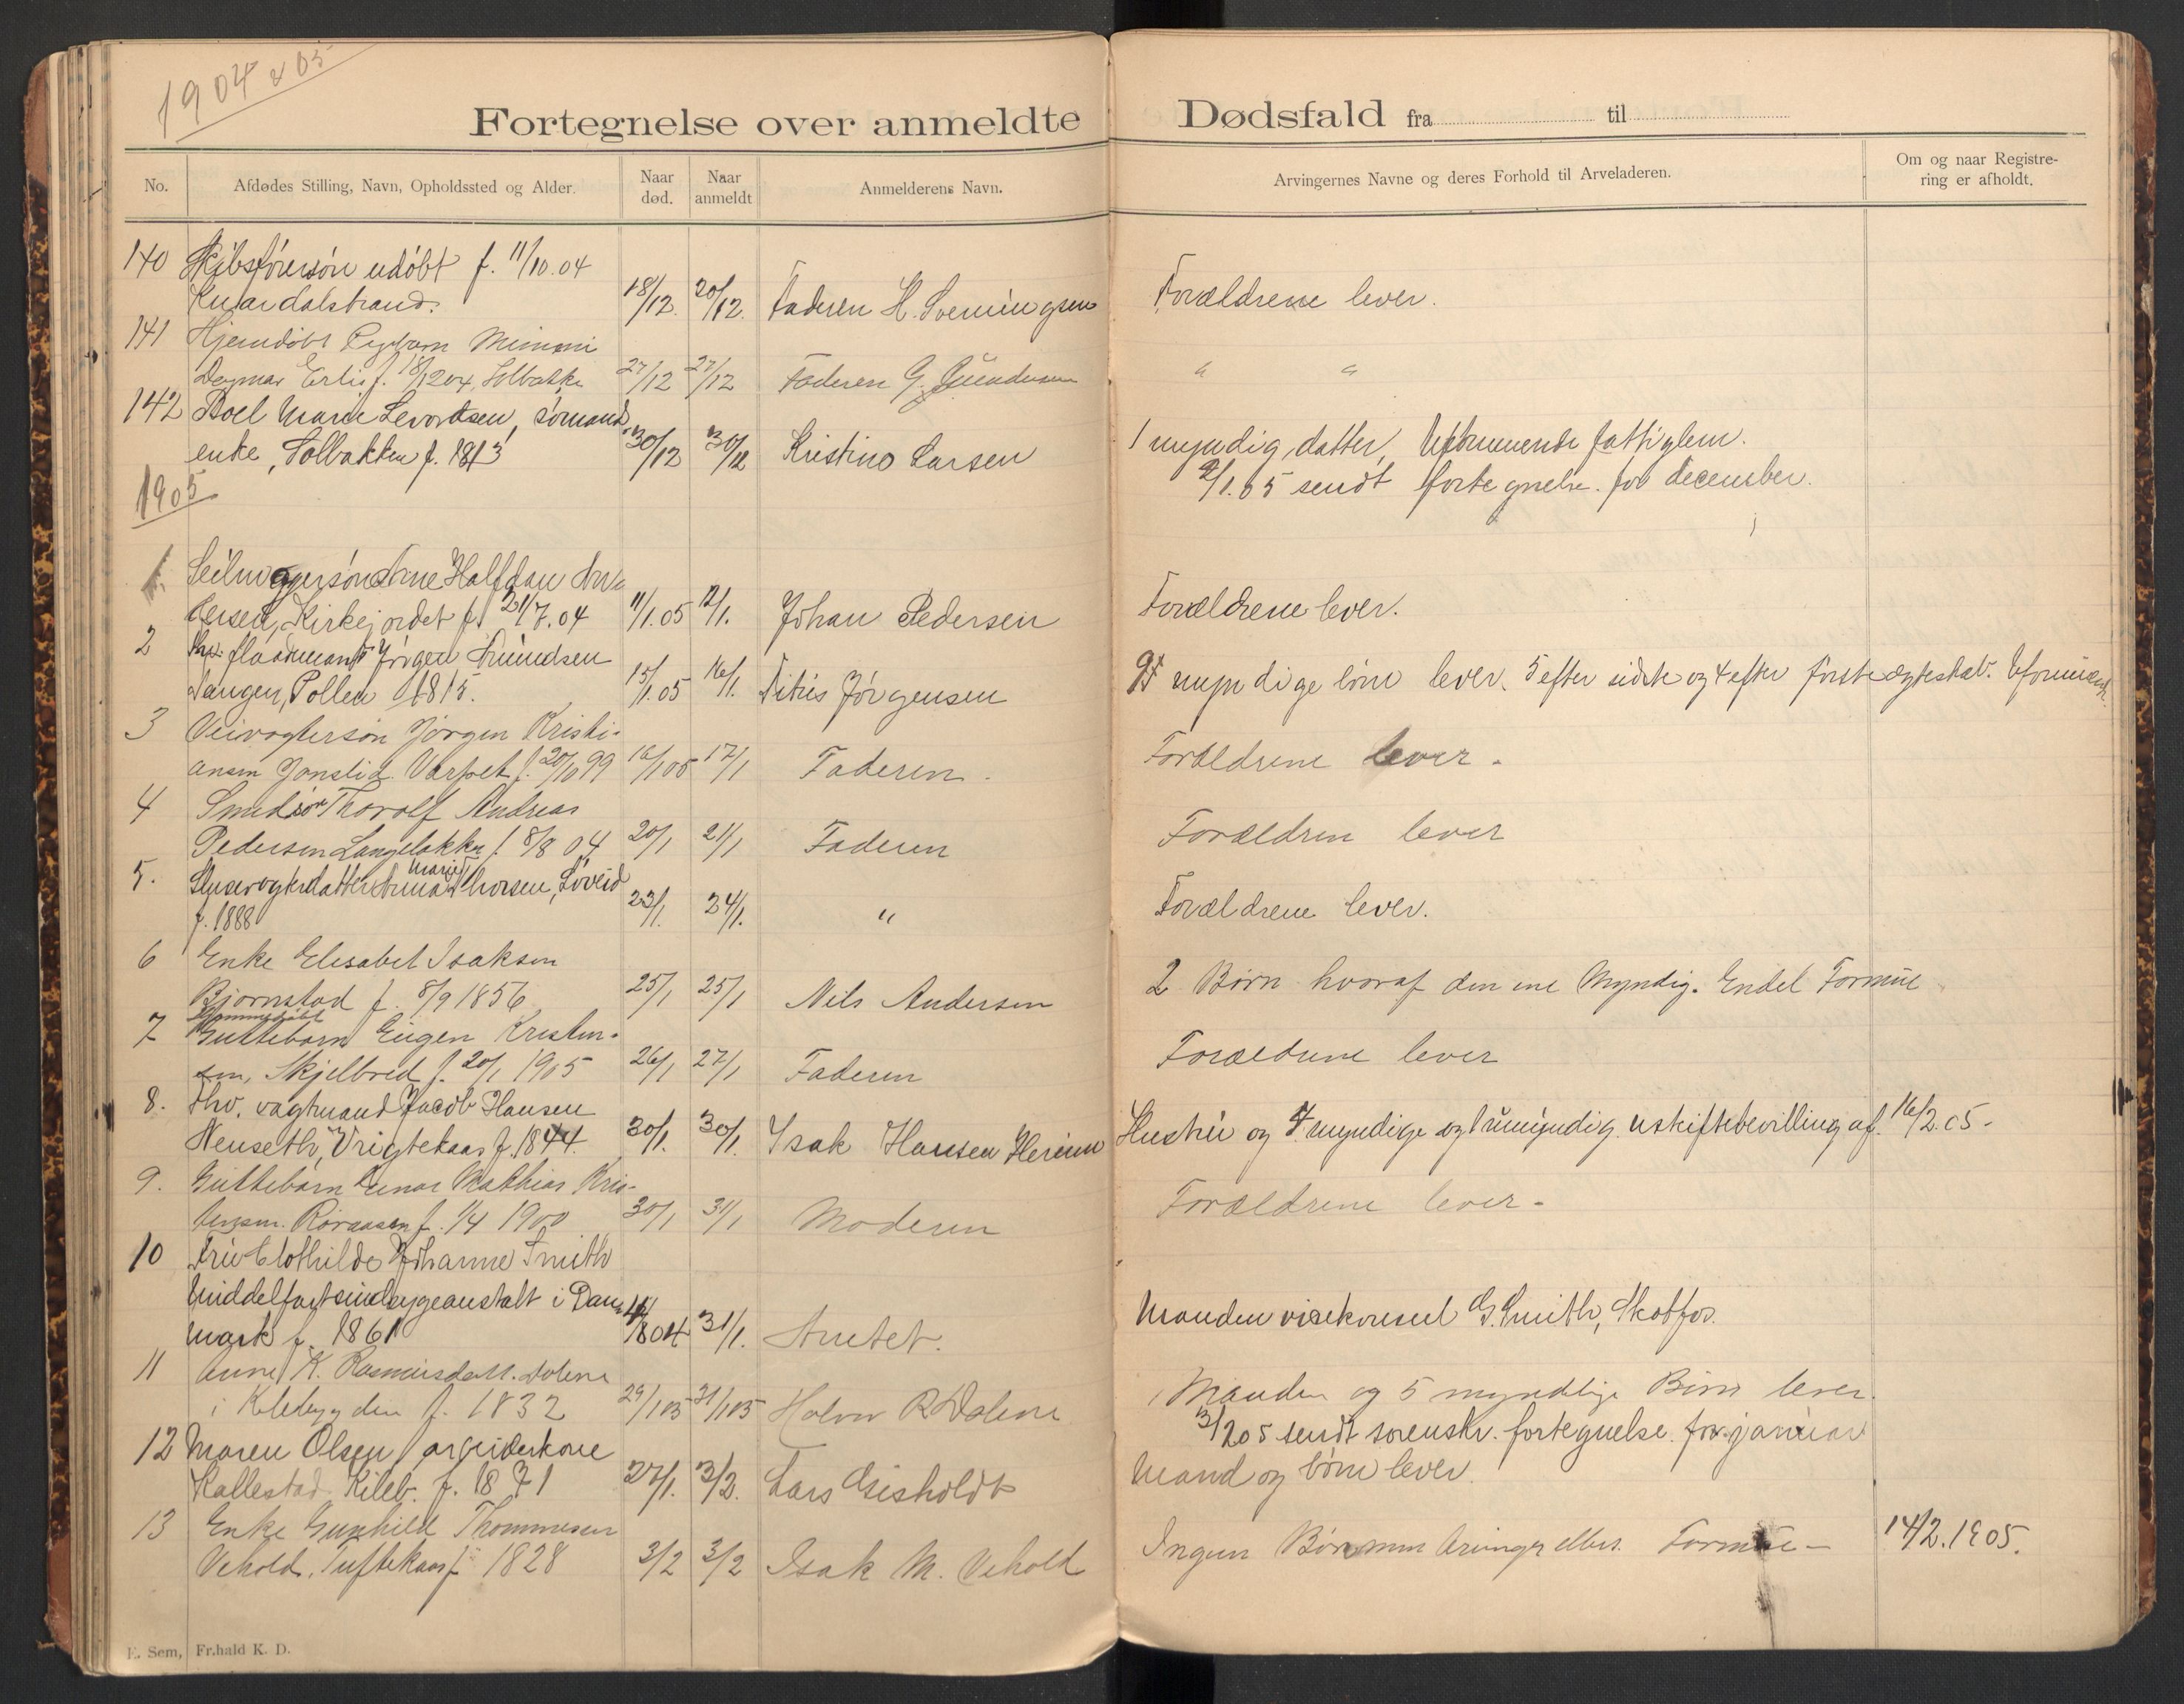 1904 & 05
Fortegnelse over anmeldte Dødsfald fra til
No.
Afdødes Stilling, Navn, Opholdssted og Alder.
Naar død.
Naar anmeldt
Anmelderens Navn.
Arvingernes Navne og deres Forhold til Arveladeren.
Om og naar Registrering er afholdt.
140 Skibsførersøn udøbt f. 11/10.04
Knardalstrand. 18/12. 20/12. Faderen H. Sveningsen Forældrene lever.
141 Hjemdøbt Pigebarn Mimmi
Dagmar f. 18/12 04, Solbakken 27/12 27/12 Faderen G. Gundersen " "
142 Boel Marie Levordsen, sømands
enke, Solbakken f. 1813 30/12 30/12 Kristine Larsen 1 myndig datter, Uformuende fattiglem.
2/1.05 sendt fortegnelse for december.
1905
1. Halfdan
Kirkejordet f. 21/7.04 11/1.05 12/1. Johan Pedersen Forældrene lever.
2 fhv. flaadmand Jørgen Amundsen
Tangen, Pollen 1815. 15/1.05 16/1. Titus Jørgensen 9 myndige børn lever. 5 efter sidste og 4 efter første ægteskab.
3 Veivogtersøn Jørgen Kristi-
ansen Jonslid. Varpet f. 20/10 99 16/1 05 17/1 Faderen. Forældrene lever -
4 Smedsøn Thorolf Andreas
Pedersen Langebakken f. 8/8 04 20/1 21/1 Faderen Forældrene lever
5. Slusevogterdatter Anna Marie Thorsen, Løveid
f. 1888 23/1. 24/1. " Forældrene lever.
6 Enke Elisabet Isaksen
Bjørnstad f. 8/9 1856 25/1 25/1 Nils Andersen 2 Børn hvoraf den ene Myndig. Endel Formue
7 Hjemmedøbt
Guttebarn Eugen Kristen-
sen, Skjelbred f. 20/1 1905 26/1 27/1 Faderen Forældrene lever
8. Fhv. vagtmand Jacob Hansen
Vrigtekaas f. 1844. 30/1. 30/1. Isak Hansen Hustru og 4 myndige og 1 umyndig. uskiftebevilling af 16/2.05.
9. Guttebarn Einar Mathias Kris-
tensen. Røraasen f. 1/4 1900 30/1 31/1 Moderen Forældrene lever -
10 Fru Clothilde Johanne Smith
Middelfart sindsygeanstalt i Dan-
mark f. 1861 04 31/1. Amtet. Manden visekonsul G. Smith, Skotfos.
11 Anne K. Rasmusdatt. Dolene
i Kilebygden f. 1832 29/1 05 31/1 05 Halvor R Dolene Manden og 5 myndige Børn lever.
3/2 05 sendt sorenskr. fortegnelse for januar
12 Maren Olsen, arbeiderkone
Kallestad Kileb. f. 1871 27/1. 3/2. Lars Gisholdt Mand og børn lever.
13 Enke Gunhild Thommesen
Vehold, Tuftekaas f. 1828 3/2 3/2 Isak M. Vehold Ingen Børn men Arvinger ellers. Formue - 14/2.1905.
E. Sem, Fr.hald K. D.